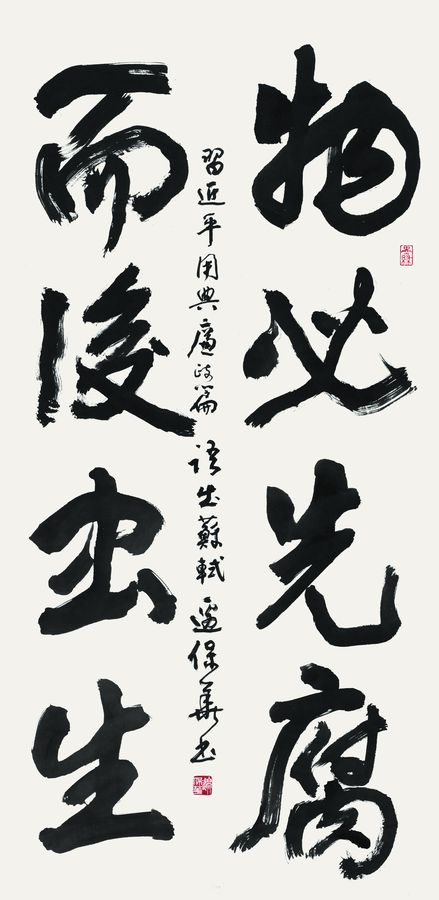 物必先腐
而後虫生
習近平用典廉政篇 語出蘇軾 邊保華書